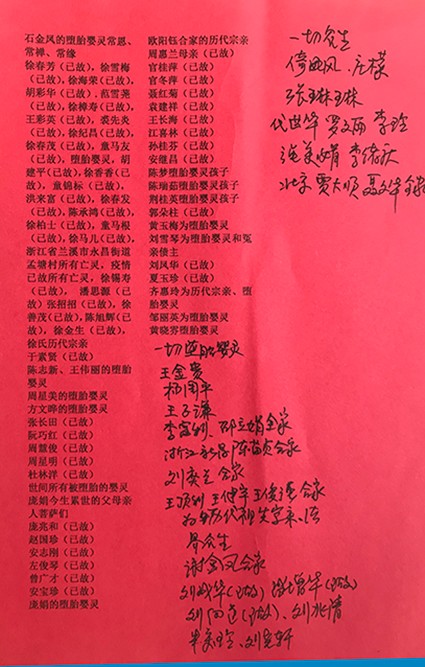 石金凤的堕胎婴灵常恩、
常禅、常缘
徐春芳（已故），徐雪梅
（已故），徐海荣（已故），
胡彩华（已故）、范雪尧
（已故），徐樟寿（已故），
王彩英（已故），裘先炎
（已故），徐纪昌（已故），
徐春茂（已故），童马友
（已故），堕胎婴灵，胡
建平（已故），徐香香（已
故），童锦标（已故），
洪来富（已故），徐春发
（已故），陈承鸿（已故），
徐柏士（已故），童马根
（已故），徐马儿（已故），
浙江省兰溪市永昌街道
孟塘村所有亡灵，疫情
已故所有亡灵，徐锡寿
（已故），潘思源（已
故）张招招（已故），徐
善茂（已故），陈旭辉（已
故），徐金生（已故），
徐氏历代宗亲
于素贤（已故）
陈志新、王伟丽的堕胎
婴灵
周星美的堕胎婴灵
方文晔的堕胎婴灵
张长田（已故）
阮巧红（已故）
周慧俊（已故）
周星明（已故）
杜林洋（已故）
世间所有被堕胎的婴灵
庞娟今生累世的父母亲
人菩萨们
庞亮和（已故）
赵国珍（已故）
安志刚（已故）
左俊琴（已故）
曾广才（已故）
安宝珍（已故）
庞娟的堕胎婴灵
欧阳钰合家的历代宗亲
周惠兰母亲（已故）
官桂萍（已故）
官冬萍（已故）
聂红菊（已故）
袁建祥（已故）
王长海（已故）
江喜林（已故）
孙桂芬（已故）
安继昌（已故）
陈梦堕胎婴灵孩子
陈瑞茹堕胎婴灵孩子
荆桂英堕胎婴灵孩子
郭朵柱（已故）
黄玉梅为堕胎婴灵
刘雪琴为堕胎婴灵和冤
亲债主
刘凤华（已故）
夏玉珍（已故）
齐惠玲为历代宗亲、堕
胎婴灵
邹丽英为堕胎婴灵
黄晓雰堕胎婴灵
一切堕胎婴灵
王金贵
杨国平
王子谦
李富钊
浙江永昌陈苗贞合家
刘奕兰合家
王顶钊 王健宇 王俊 合家
为历代祖失宗亲、法
界众生
谢金凤合家
刘成华（已故）谢增华（已故）
刘 （已故）、刘兆清
一切众生
倚西风 庄檬
张琳琳
代世华 罗文丽 李玲
李绪秋
北京 贾大顺 聂文华合家